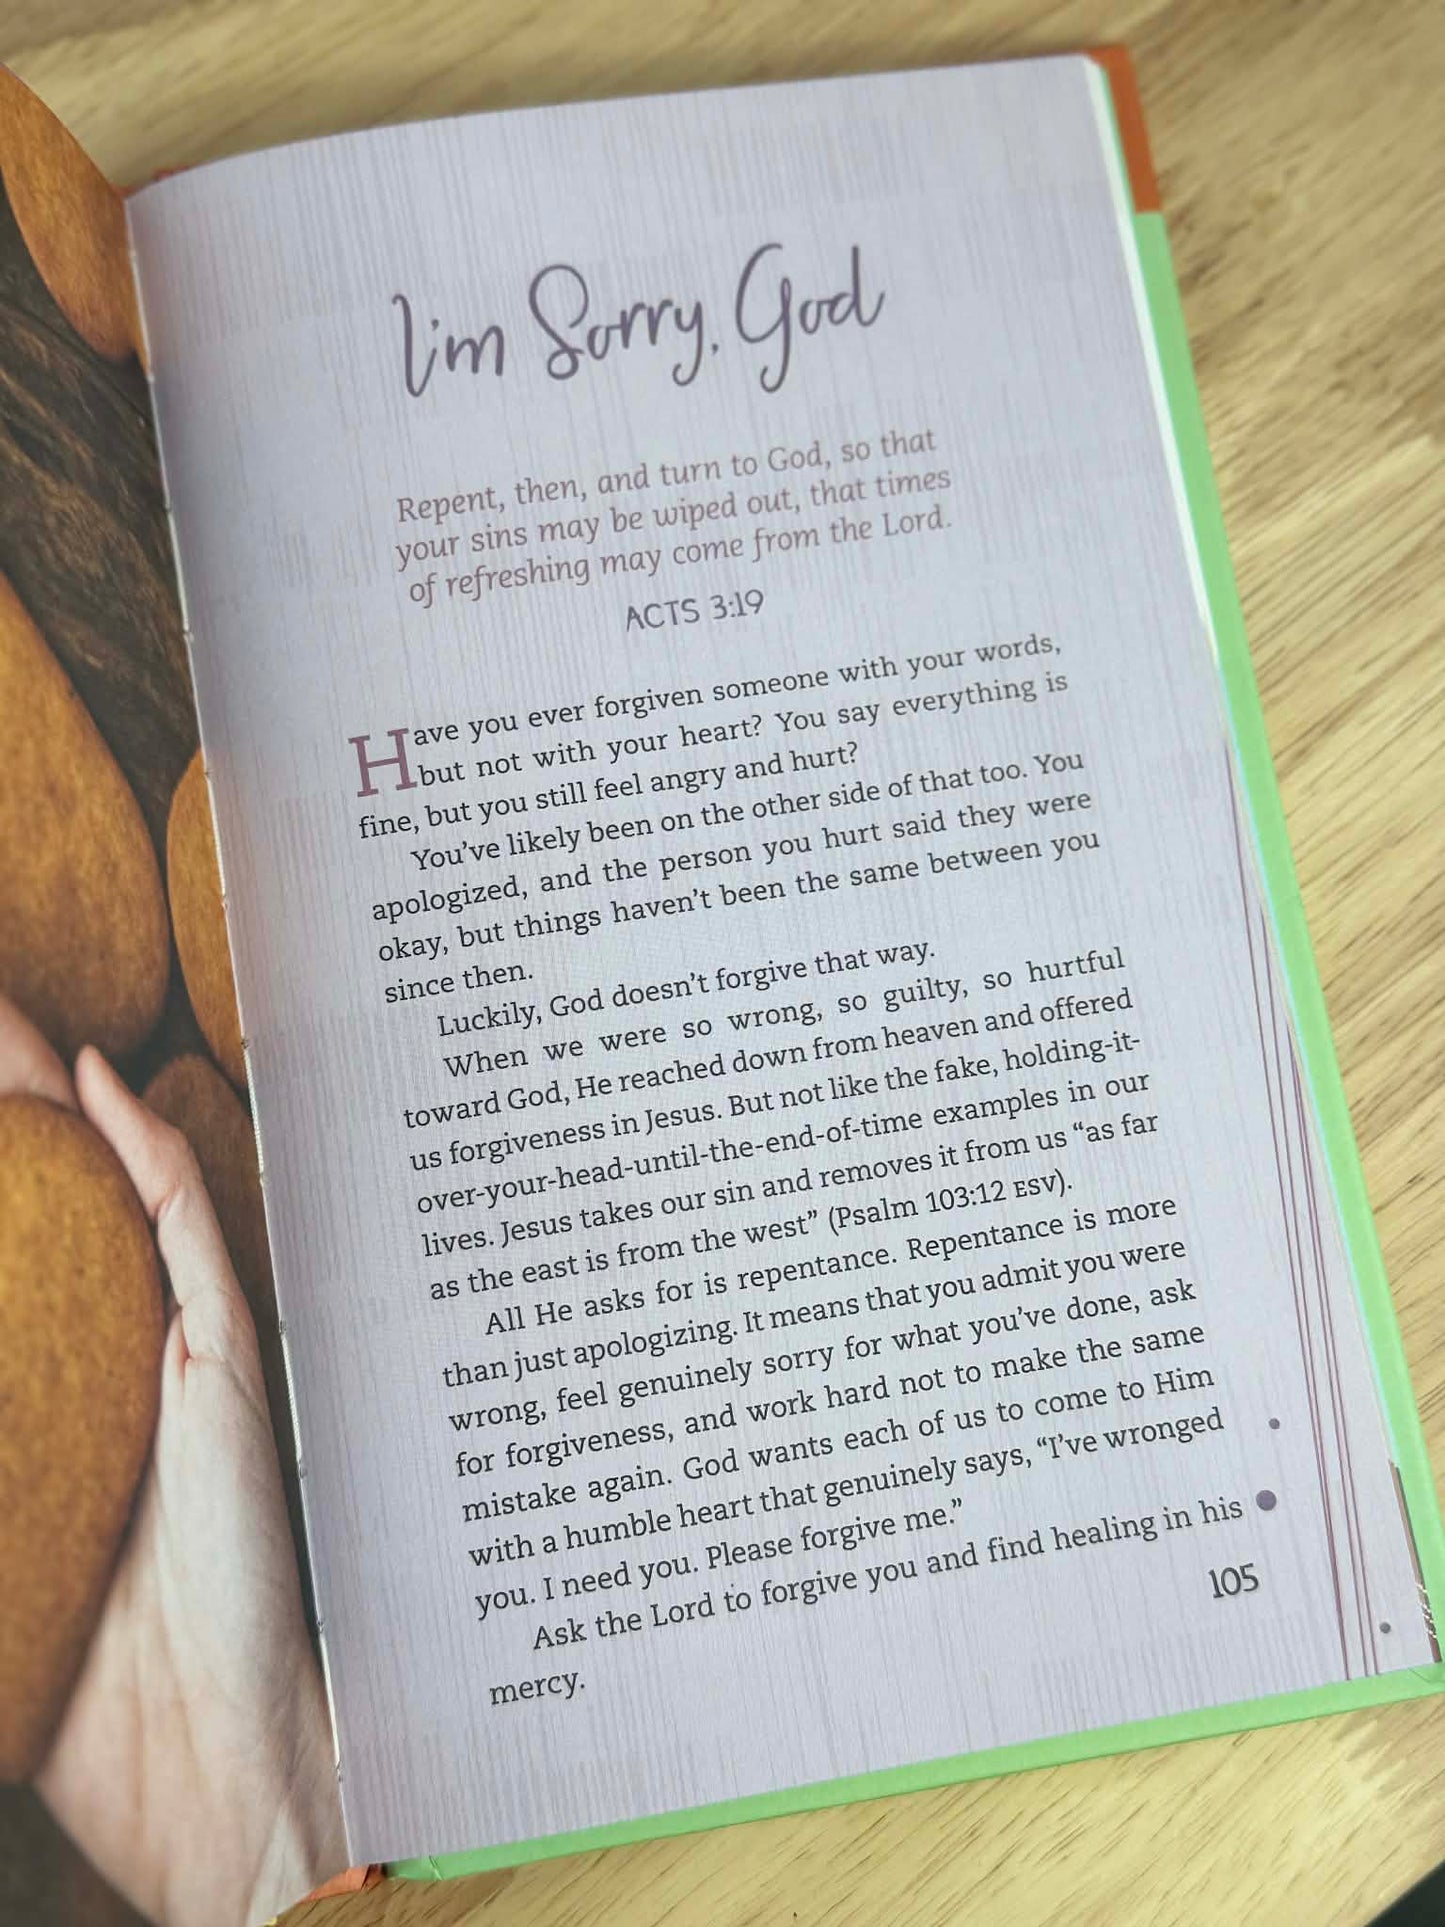 I'm Sorry, God
Repent, then, and turn to God, so that
your sins may be wiped out, that times
of refreshing may come from the Lord.
ACTS 3:19
Have you ever forgiven someone with your words,
but not with your heart? You say everything is
fine, but you still feel angry and hurt?
You've likely been on the other side of that too. You
apologized, and the person you hurt said they were
okay, but things haven't been the same between you
since then.
Luckily, God doesn't forgive that way.
When we were so wrong, so guilty, so hurtful
toward God, He reached down from heaven and offered
us forgiveness in Jesus. But not like the fake, holding-it-
over-your-head-until-the-end-of-time examples in our
lives. Jesus takes our sin and removes it from us “as far
as the east is from the west” (Psalm 103:12 ESV).
All He asks for is repentance. Repentance is more
than just apologizing. It means that you admit you were
wrong, feel genuinely sorry for what you've done, ask
for forgiveness, and work hard not to make the same
mistake again. God wants each of us to come to Him
with a humble heart that genuinely says, “I've wronged
you. I need you. Please forgive me.”
Ask the Lord to forgive you and find healing in his
mercy.
105